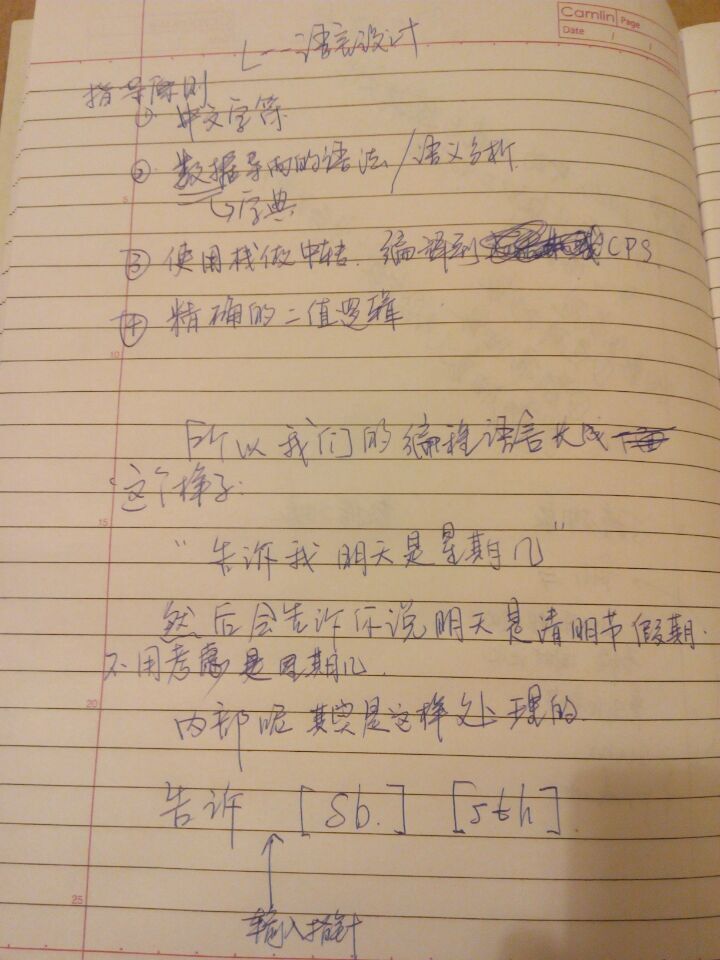 Camlin Page
Date / /
L---语言设计
指导原则
① 中文字符
② 数据导向的语法/语义分析
↳字典
③ 使用栈做中转. 编译到 CPS
④ 精确的二值逻辑
所以我们的编程语言长成
这个样子:
"告诉我 明天是星期几"
然后会告诉你说明天是清明节假期.
不用考虑是星期几.
内部呢 其实是这样处理的
告诉 [Sb.] [sth]
输入指针
5
10
15
20
25